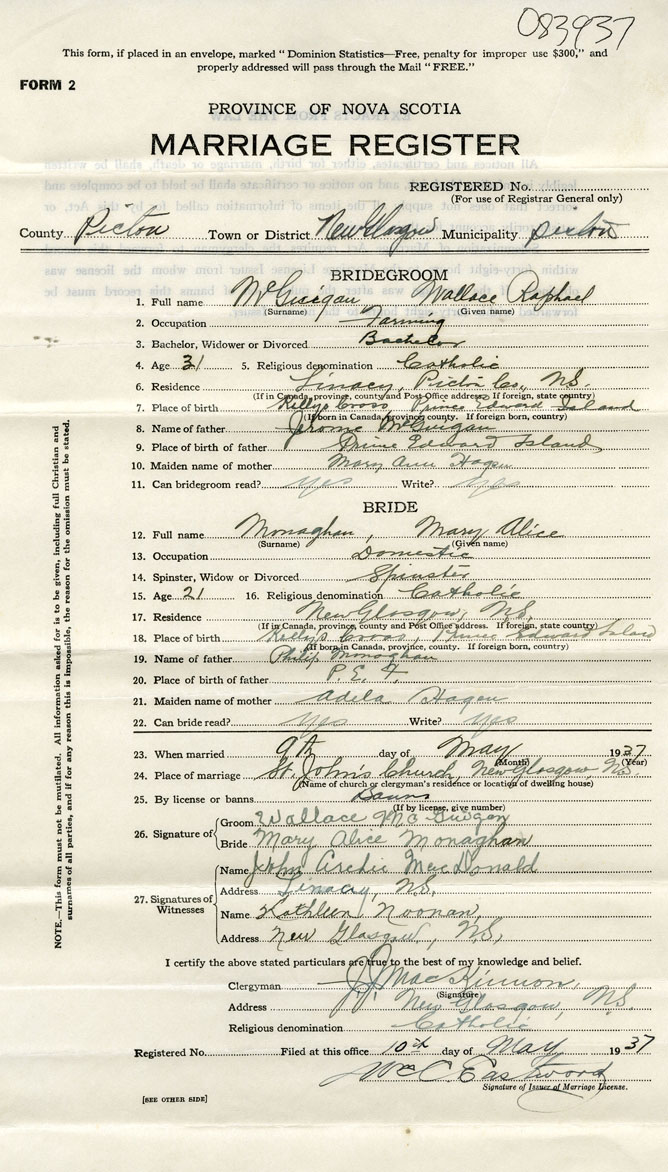 083937
This form, if placed in an envelope, marked "Dominion Statistics—Free, penalty for improper use $300," and
properly addressed will pass through the Mail "FREE."
FORM 2
PROVINCE OF NOVA SCOTIA
MARRIAGE REGISTER
REGISTERED No.
(For use of Registrar General only)
County Pictou Town or District New Glasgow Municipality Pictou
BRIDEGROOM
1. Full name McGuigan Wallace Raphael
(Surname) (Given name)
2. Occupation Farming
3. Bachelor, Widower or Divorced Bachelor
4. Age 31 5. Religious denomination Catholic
6. Residence Linacy, Pictou Co., N.S.
(If in Canada, province, county and Post Office address. If foreign, state country)
7. Place of birth Kellys Cross, Prince Edward Island
(If born in Canada, province, county. If foreign born, country)
8. Name of father Jerome McGuigan
9. Place of birth of father Prince Edward Island
10. Maiden name of mother Mary Ann Hagen
11. Can bridegroom read? yes Write? yes
BRIDE
12. Full name Monaghan, Mary Alice
(Surname) (Given name)
13. Occupation Domestic
14. Spinster, Widow or Divorced Spinster
15. Age 21 16. Religious denomination Catholic
17. Residence New Glasgow, N.S.
(If in Canada, province, county and Post Office address. If foreign, state country)
18. Place of birth Kellys Cross, Prince Edward Island
(If born in Canada, province, county. If foreign born, country)
19. Name of father Philip Monaghan
20. Place of birth of father P.E.I.
21. Maiden name of mother Adela Hagen
22. Can bride read? yes Write? yes
23. When married 9th day of May 1937
(Month) (Year)
24. Place of marriage St. John's Church, New Glasgow, N.S.
(Name of church or clergyman's residence or location of dwelling house)
25. By license or banns Banns
(If by license, give number)
26. Signature of Groom Wallace McGuigan
Bride Mary Alice Monaghan
27. Signatures of Witnesses Name John Archie MacDonald
Address Linacy, N.S.
Name Kathleen Noonan,
Address New Glasgow, N.S.
I certify the above stated particulars are true to the best of my knowledge and belief.
Clergyman J.J. MacKinnon.
(Signature)
Address New Glasgow, N.S.
Religious denomination Catholic
Registered No. Filed at this office 10th day of May 1937
Wm C. Eastwood
Signature of Issuer of Marriage License.
[SEE OTHER SIDE]
NOTE.—This form must not be mutilated. All information asked for is to be given, including full Christian and
surnames of all parties, and if for any reason this is impossible, the reason for the omission must be stated.